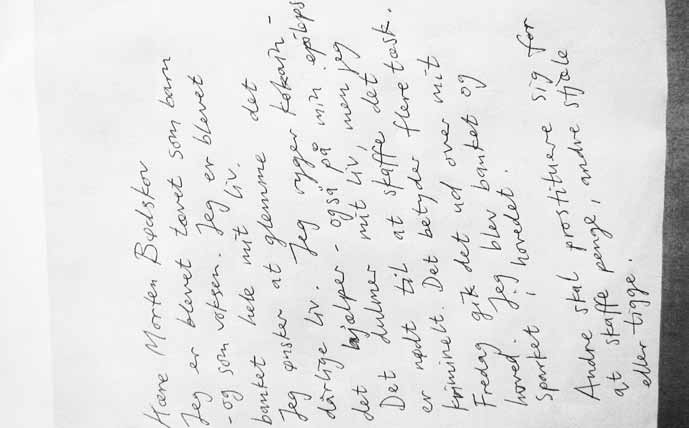 Kære Morten Bødskov
Jeg er blevet tævet som barn
- og som voksen. Jeg er blevet
banket hele mit liv.
Jeg ønsker at glemme det
dårlige liv. Jeg ryger kokain -
det hjælper - også på min epileps
Det dulmer mit liv, men jeg
er nødt til at skaffe det
kriminelt. Det betyder flere tæsk.
Fredag gik det ud over mit
hoved. Jeg blev banket og
sparket i hovedet.
Andre skal prostituere sig for
at skaffe penge, andre stjæle
eller tigge.